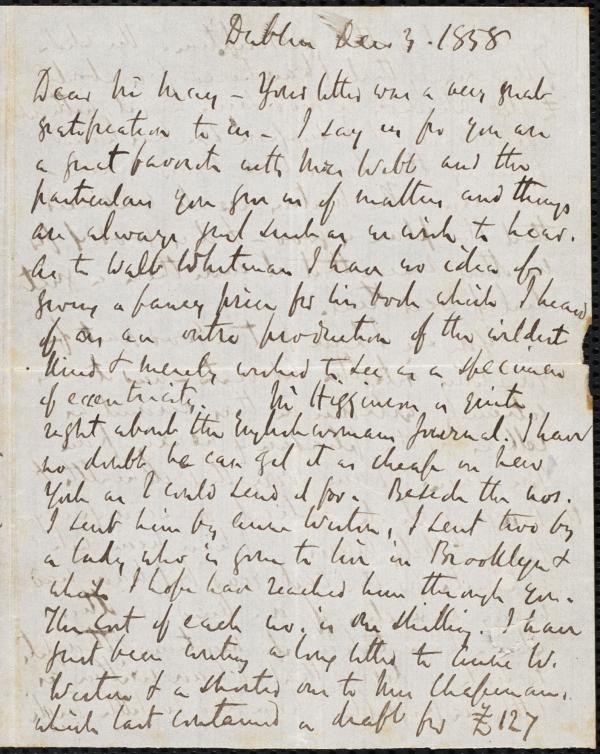 Dublin Dec 3. 1858
Dear Mr May – Your letter was a very great
gratification to us – I say us for you are
a great favorite with Miss Webb and the
particulars you give us of matters and things
are always just such as we wish to hear.
As to Walt Whitman I have no idea of
giving a fancy price for his book which I heard
of as an outré production of the wildest
kind & merely wished to see as a specimen
of eccentricity. Mr Higginson is quite
right about the Englishwomans Journal. I have
no doubt he can get it as cheap in New
York as I could send it for. Beside the nos.
I sent him by Anne Weston, I sent two by
a lady who is gone to live in Brooklyn &
which I hope have reached him through you.
The cost of each no. is one shilling. I have
just been writing a long letter to Annie W.
Weston & a shorter one to Mrs Chapman.
which last contained a draft for £127